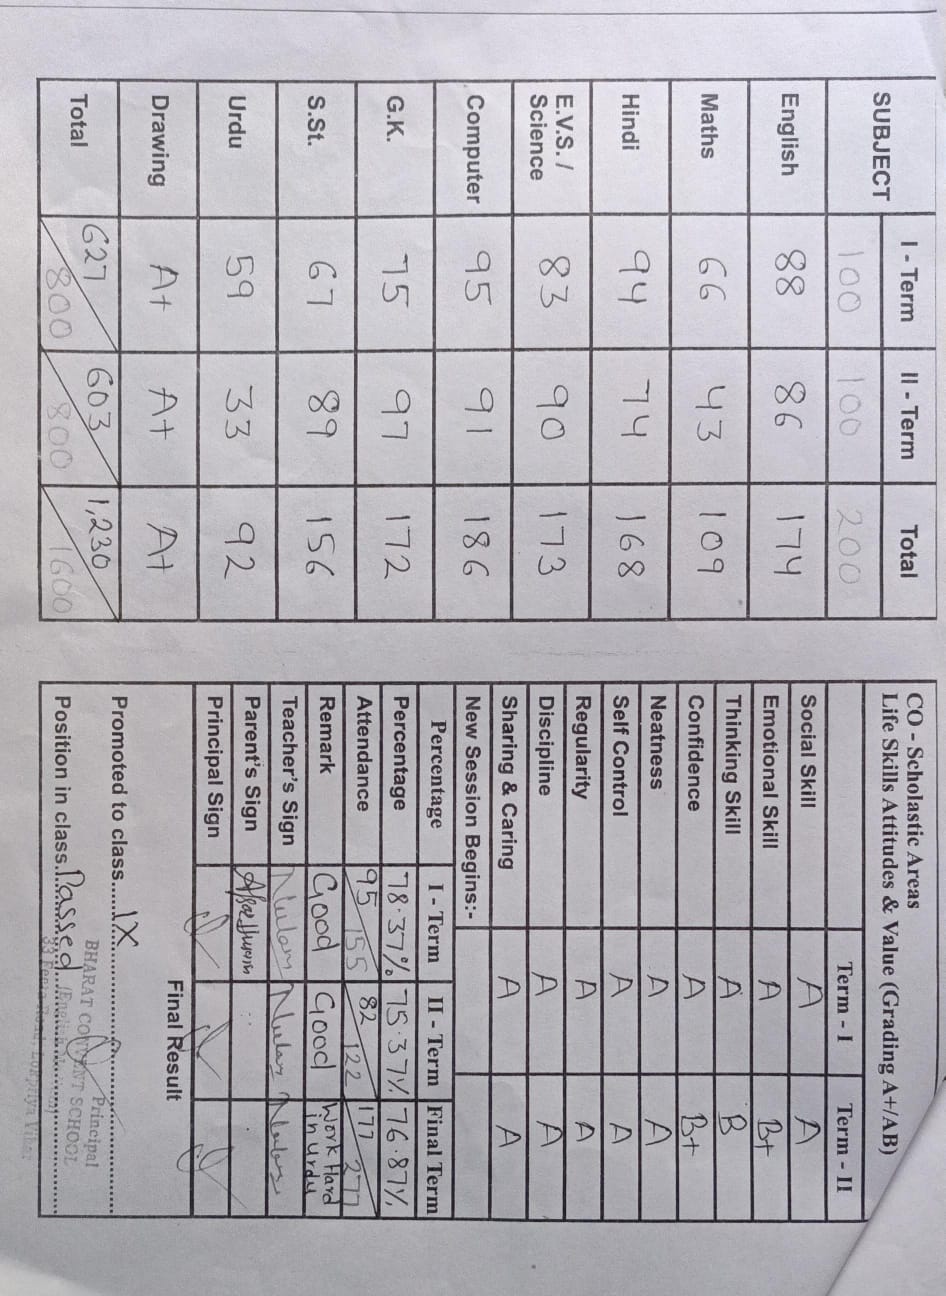 SUBJECT I - Term II - Term Total
100 100 200
English 88 86 174
Maths 66 43 109
Hindi 94 74 168
E.V.S. / Science 83 90 173
Computer 95 91 186
G.K. 75 97 172
S.St. 67 89 156
Urdu 59 33 92
Drawing A+ A+ A+
Total 627/800 603/800 1,230/1600
CO - Scholastic Areas
Life Skills Attitudes & Value (Grading A+/AB)
Term - I Term - II
Social Skill A A
Emotional Skill A B+
Thinking Skill A B
Confidence A B+
Neatness A A
Self Control A A
Regularity A A
Discipline A A
Sharing & Caring A A
New Session Begins:-
Percentage I - Term II - Term Final Term
Percentage 78.37% 75.37% 76.87%
Attendance 95/155 82/122 177/277
Remark Good Good Work Hard in urdu
Teacher's Sign Neelam Neelam Neelam
Parent's Sign
Principal Sign
Final Result
Promoted to class IX
Principal
BHARAT CONVENT SCHOOL
Position in class Passed